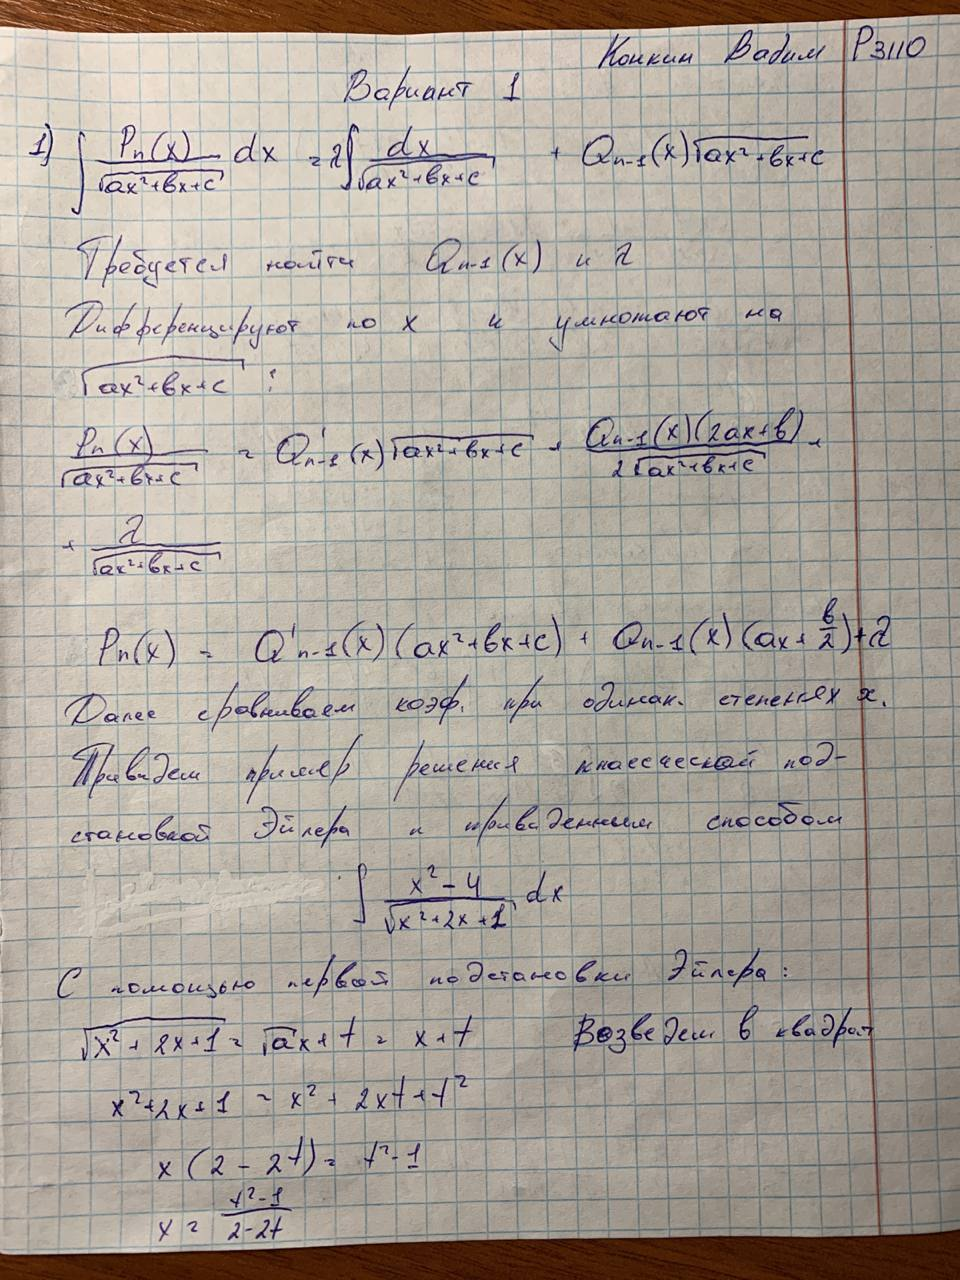 Конкин Вадим P3110
Вариант 1
1) ∫ Pn(x)/√(ax²+bx+c) dx = λ∫ dx/√(ax²+bx+c) + Qn-1(x)√(ax²+bx+c)
Требуется найти Qn-1(x) и λ
Дифференцируют по x и умножают на
√(ax²+bx+c) :
Pn(x)/√(ax²+bx+c) = Q'n-1(x)√(ax²+bx+c) + Qn-1(x)(2ax+b)/2√(ax²+bx+c) +
+ λ/√(ax²+bx+c)
Pn(x) = Q'n-1(x)(ax²+bx+c) + Qn-1(x)(ax+b/2)+λ
Далее сравниваем коэф. при одинак. степенях x.
Приведем пример решения классической под-
становкой Эйлера и приведенным способом
∫ x²-4/√(x²+2x+1) dx
С помощью первой подстановки Эйлера:
√(x²+2x+1) = √a x + t = x + t Возведем в квадрат
x²+2x+1 = x² + 2xt + t²
x(2-2t) = t²-1
x = t²-1/2-2t